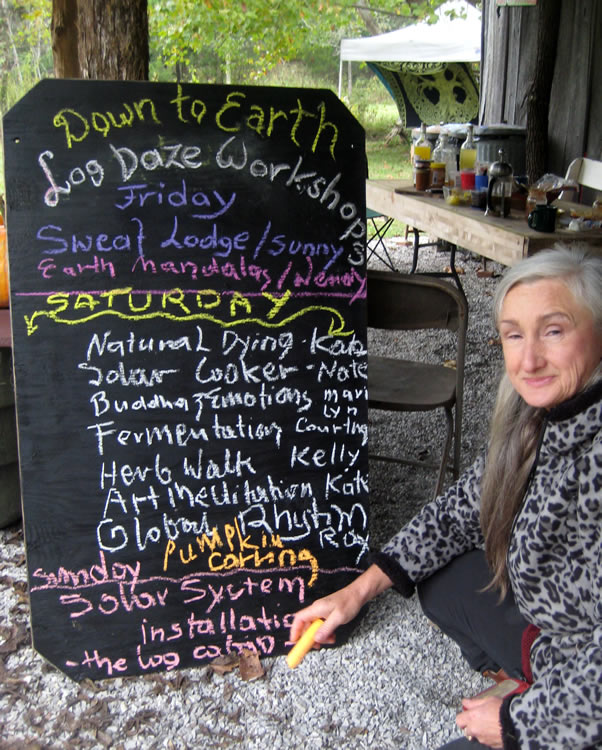 Down to Earth
Log Daze Workshops
Friday
Sweat Lodge/Sunny
Earth mandalas/Wendy
SATURDAY
Natural Dying - Kate
Solar Cooker - Nate
Buddha Emotions mari
lyn
Fermentation Courtney
Herb Walk Kelly
Art meditation Kate
Global Rhythm
Ray
Pumpkin
carving
Sunday
Solar System
installatio
- the log cabin